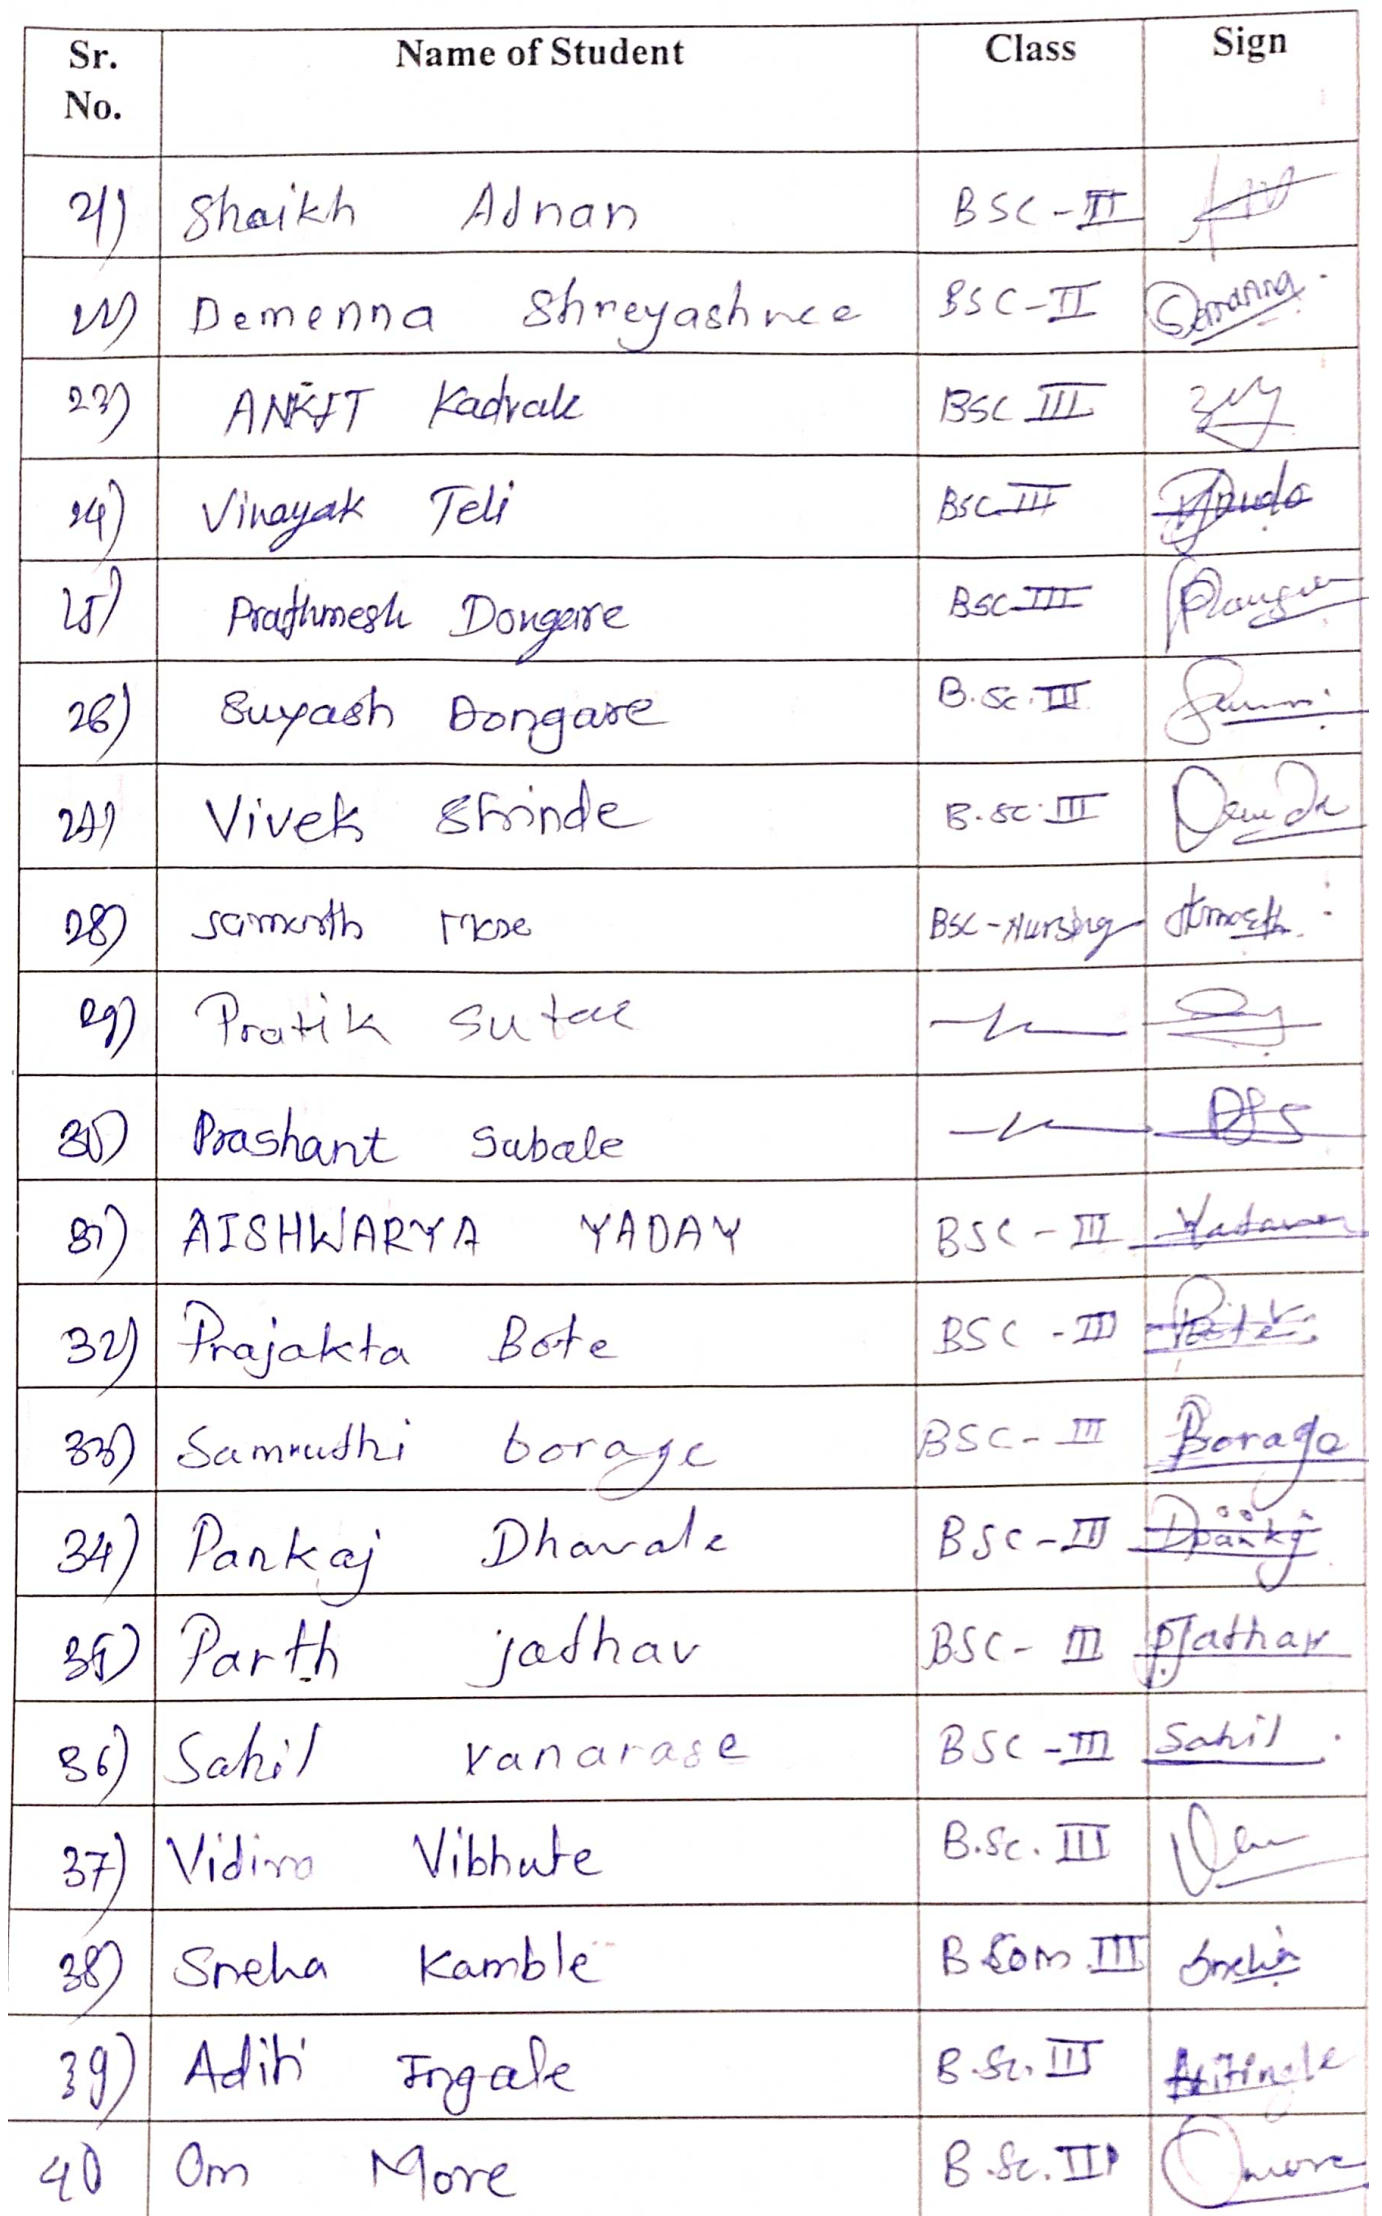 Sr. No. Name of Student Class Sign
21) Shaikh Adnan BSC-II
22) Demenna Shreyashree BSC-II Demanna
23) ANKIT Kadvale BSC III
24) Vinayak Teli BSC III
25) Prathmesh Dongare BSC III
26) Suyash Dongare B.Sc. III
27) Vivek Shinde B.Sc. III
28) Samarth More BSC-Nursing
29) Pratik Sutar —〃—
30) Prashant Sabale —〃—
31) AISHWARYA YADAV BSC-III
32) Prajakta Bote BSC-III Bote
33) Samrudhi borage BSC-III Borage
34) Pankaj Dhavale BSC-III
35) Parth jadhav BSC-III PJadhav
36) Sahil vanarase BSC-III Sahil
37) Vibhute B.Sc. III
38) Sneha Kamble B Com III Sneha
39) Aditi Ingale B.Sc. III
40 Om More B.Sc. III Omore